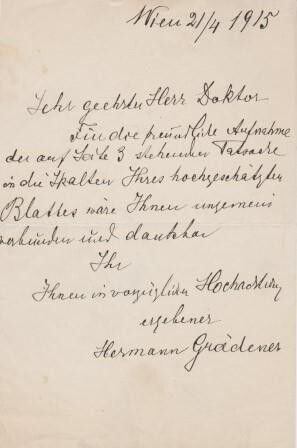 Wien 21/4 1915
Sehr geehrter Herr Doktor
Für die freundliche Aufnahme
der auf Seite 3 stehenden Tatsache
in die Spalten Ihres hochgeschätzten
Blattes wäre Ihnen ungemein
verbunden und dankbar
Ihr
Ihnen in vorzüglicher Hochachtung
ergebener
Hermann Grädener